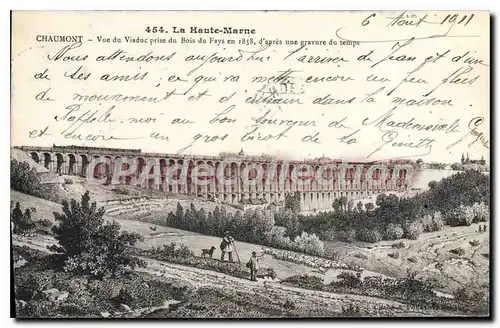 6 Août 1911
454. La Haute-Marne
CHAUMONT - Vue du Viaduc prise du Bois du Fays en 1858, d'après une gravure du temps
Nous attendons aujourd'hui l'arrivée de Jean et d'un
de ses amis, ce qui va mettre encore un peu plus
de mouvement et d'entrain dans la maison
Rappelle-moi au bon souvenir de Mademoiselle
et encore un gros bicot de ta Ginette
www.delcampe.net